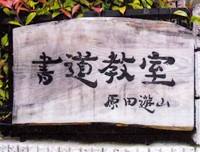 書道教室
原田遊山